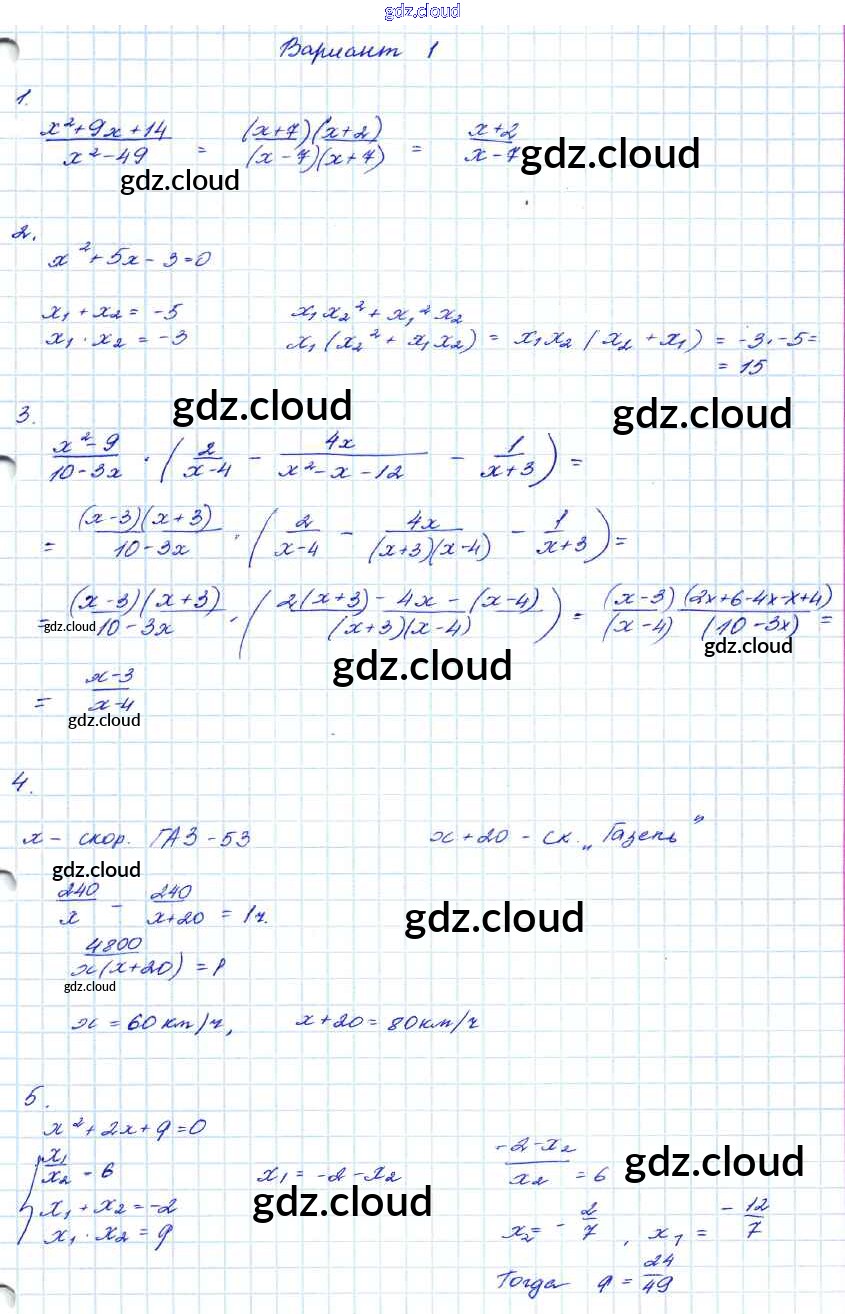 gdz.cloud
Вариант 1
1.
(x²+9x+14)/(x²-49) = ((x+7)(x+2))/((x-7)(x+7)) = (x+2)/(x-7)
gdz.cloud
gdz.cloud
2.
x²+5x-3=0
x₁+x₂ = -5    x₁x₂²+x₁²x₂
x₁·x₂ = -3    x₁(x₂²+x₁x₂) = x₁x₂(x₂+x₁) = -3·-5=
= 15
3.
gdz.cloud
gdz.cloud
(x²-9)/(10-3x) · (2/(x-4) - 4x/(x²-x-12) - 1/(x+3)) =
= ((x-3)(x+3))/(10-3x) · (2/(x-4) - 4x/((x+3)(x-4)) - 1/(x+3)) =
= ((x-3)(x+3))/(10-3x) · ((2(x+3)-4x-(x-4))/((x+3)(x-4))) = ((x-3)(2x+6-4x-x+4))/((x-4)(10-3x)) =
gdz.cloud
gdz.cloud
gdz.cloud
= (x-3)/(x-4)
gdz.cloud
4.
x - скор. ГАЗ-53    x+20 - ск. „Газель"
gdz.cloud
240/x - 240/(x+20) = 1ч.
gdz.cloud
4800/(x(x+20)) = 1
gdz.cloud
x = 60 км/ч,    x+20 = 80 км/ч
5.
x²+2x+q=0
x₁/x₂ = 6    x₁ = -2-x₂    (-2-x₂)/x₂ = 6
gdz.cloud
gdz.cloud
x₁+x₂=-2
x₁·x₂=q    x₂= -2/7, x₁ = -12/7
Тогда q = 24/49